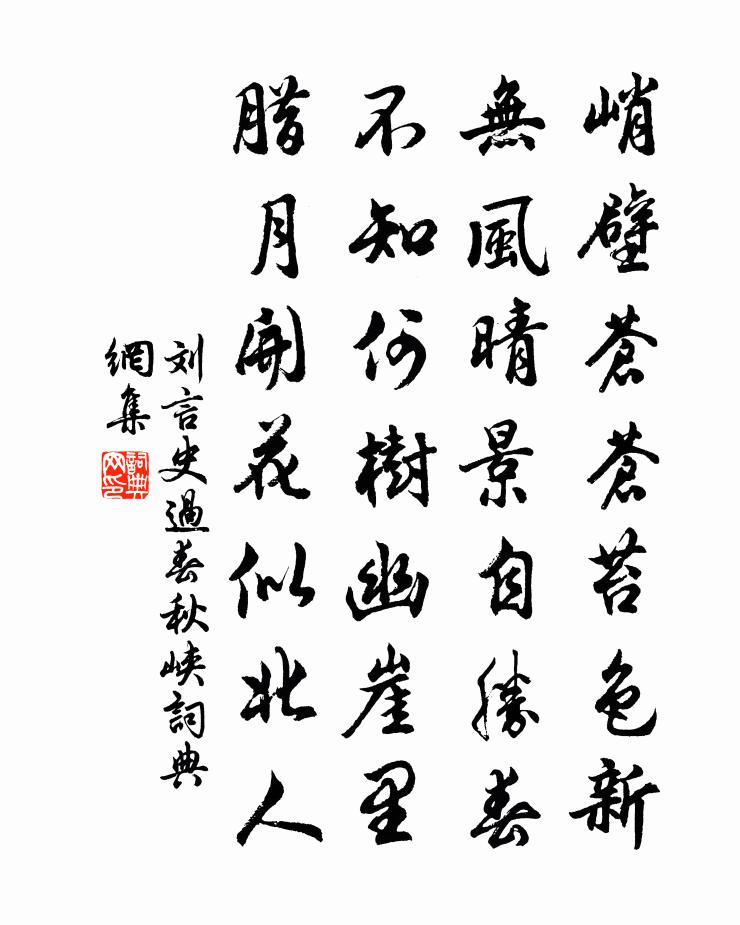 峭壁蒼蒼苔色新
無風晴景自勝春
不知何樹幽崖里
腊月開花似北人
刘言史過春秋峡詞典
網集
詞典
网印